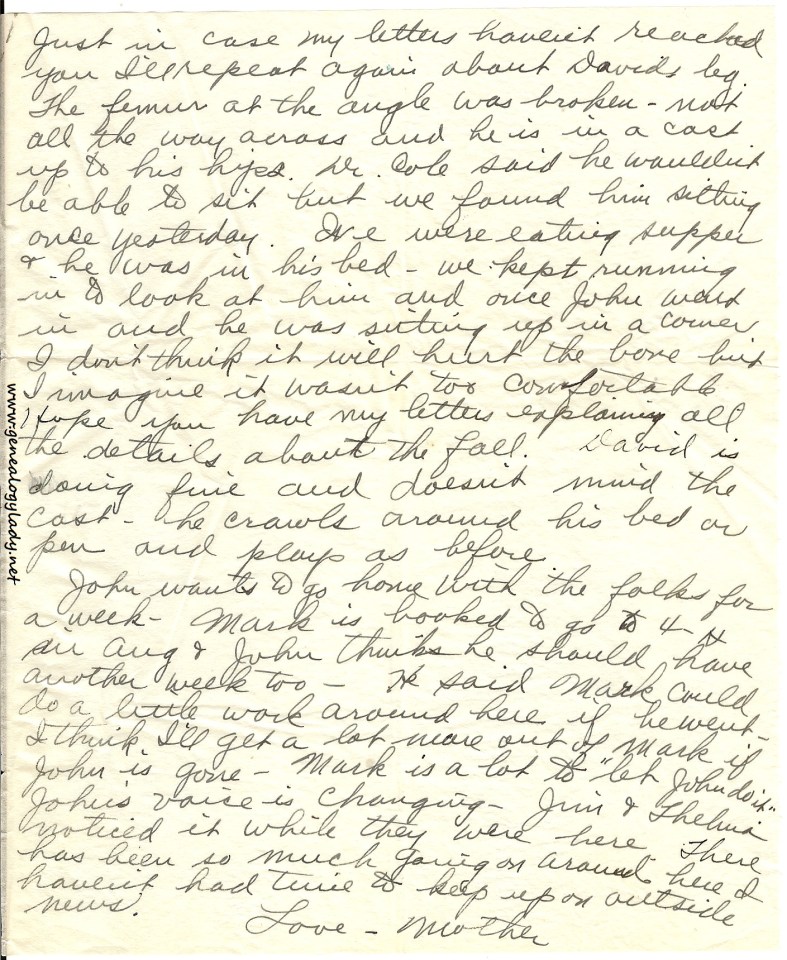 Just in case my letters haven't reached
you I'll repeat again about Davids leg.
The femur at the angle was broken - not
all the way across and he is in a cast
up to his hips. Dr. Cole said he wouldn't
be able to sit but we found him sitting
once yesterday. We were eating supper
& he was in his bed - we kept running
in to look at him and once John went
in and he was sitting up in a corner
I don't think it will hurt the bone but
I imagine it wasn't too comfortable
Hope you have my letters explaining all
the details about the fall. David is
doing fine and doesn't mind the
cast - he crawls around his bed or
pen and plays as before
John wants to go home with the folks for
a week - Mark is booked to go to 4-H
in Aug & John thinks he should have
another week too - He said Mark could
do a little work around here if he went -
I think I'll get a lot more out of Mark if
John is gone - Mark is a lot to "let John do it"
John's voice is changing - Jim & Thelma
noticed it while they were here There
has been so much going on around here I
haven't had time to keep up on outside
news.
Love - Mother
www.genealogylady.net